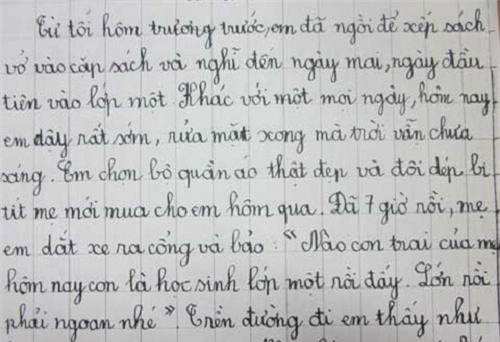 Từ tối hôm trương trước, em đã ngồi để xếp sách
vở vào cặp sách và nghĩ đến ngày mai, ngày đầu
tiên vào lớp một Khác với một mọi ngày, hôm nay
em dậy rất sớm, rửa mặt xong mà trời vẫn chưa
sáng. Em chọn bộ quần áo thật đẹp và đôi dép bi
tít mẹ mới mua cho em hôm qua. Đã 7 giờ rồi, mẹ
em dắt xe ra cổng và bảo: "Nào con trai của mẹ
hôm nay con là học sinh lớp một rồi đấy. Lớn rồi
phải ngoan nhé". Trên đường đi em thấy như